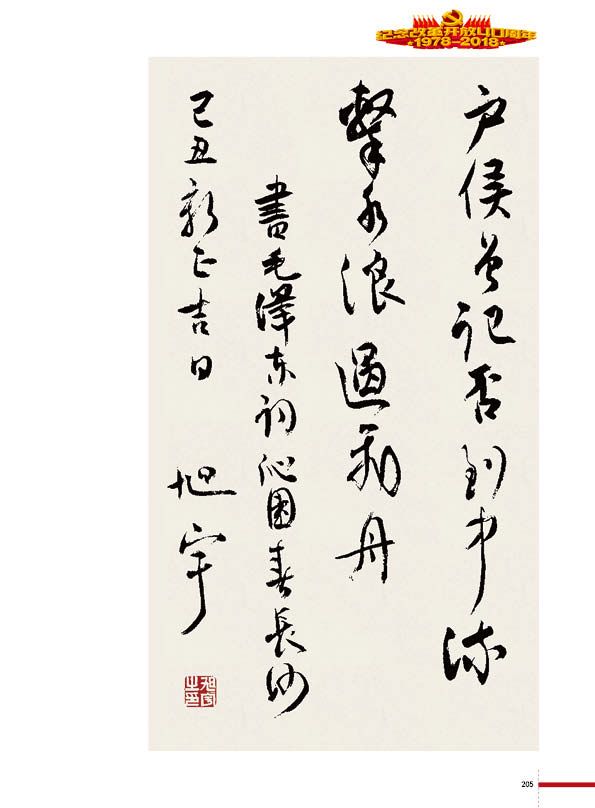 纪念改革开放40周年
1978-2018
户侯曾记否到中流
擊水浪遏飛舟
書毛澤东词沁園春長沙
己丑新正吉日 旭宇
旭宇之印
205